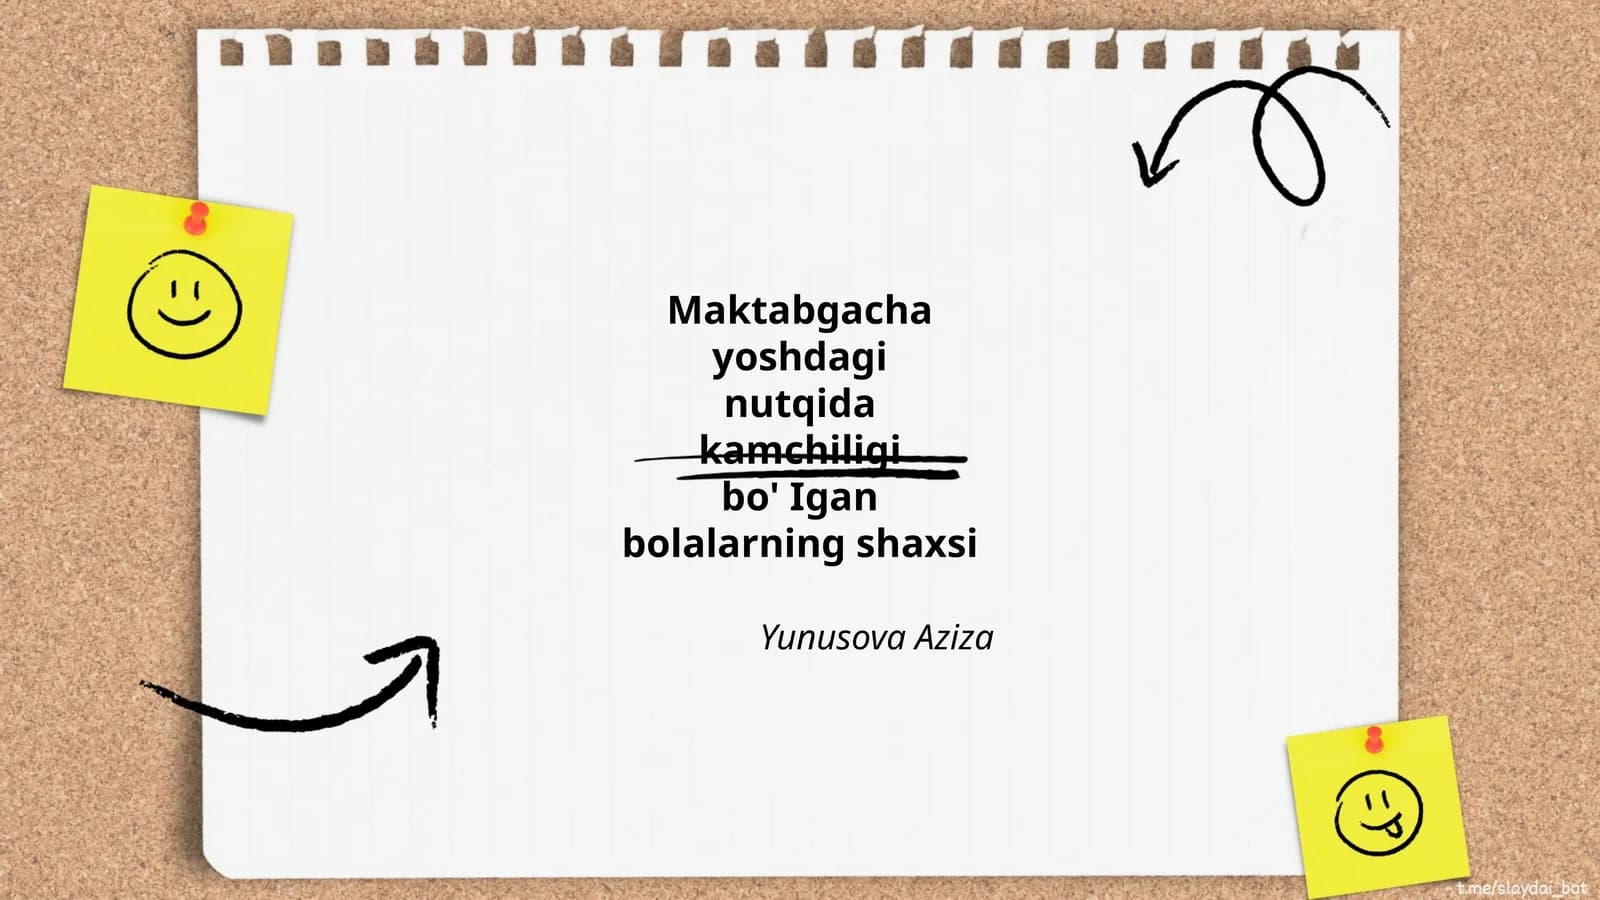 Maktabgacha
yoshdagi
nutqida
kamchiligi
bo' Igan
bolalarning shaxsi
Yunusova Aziza
t.me/slaydai_bot